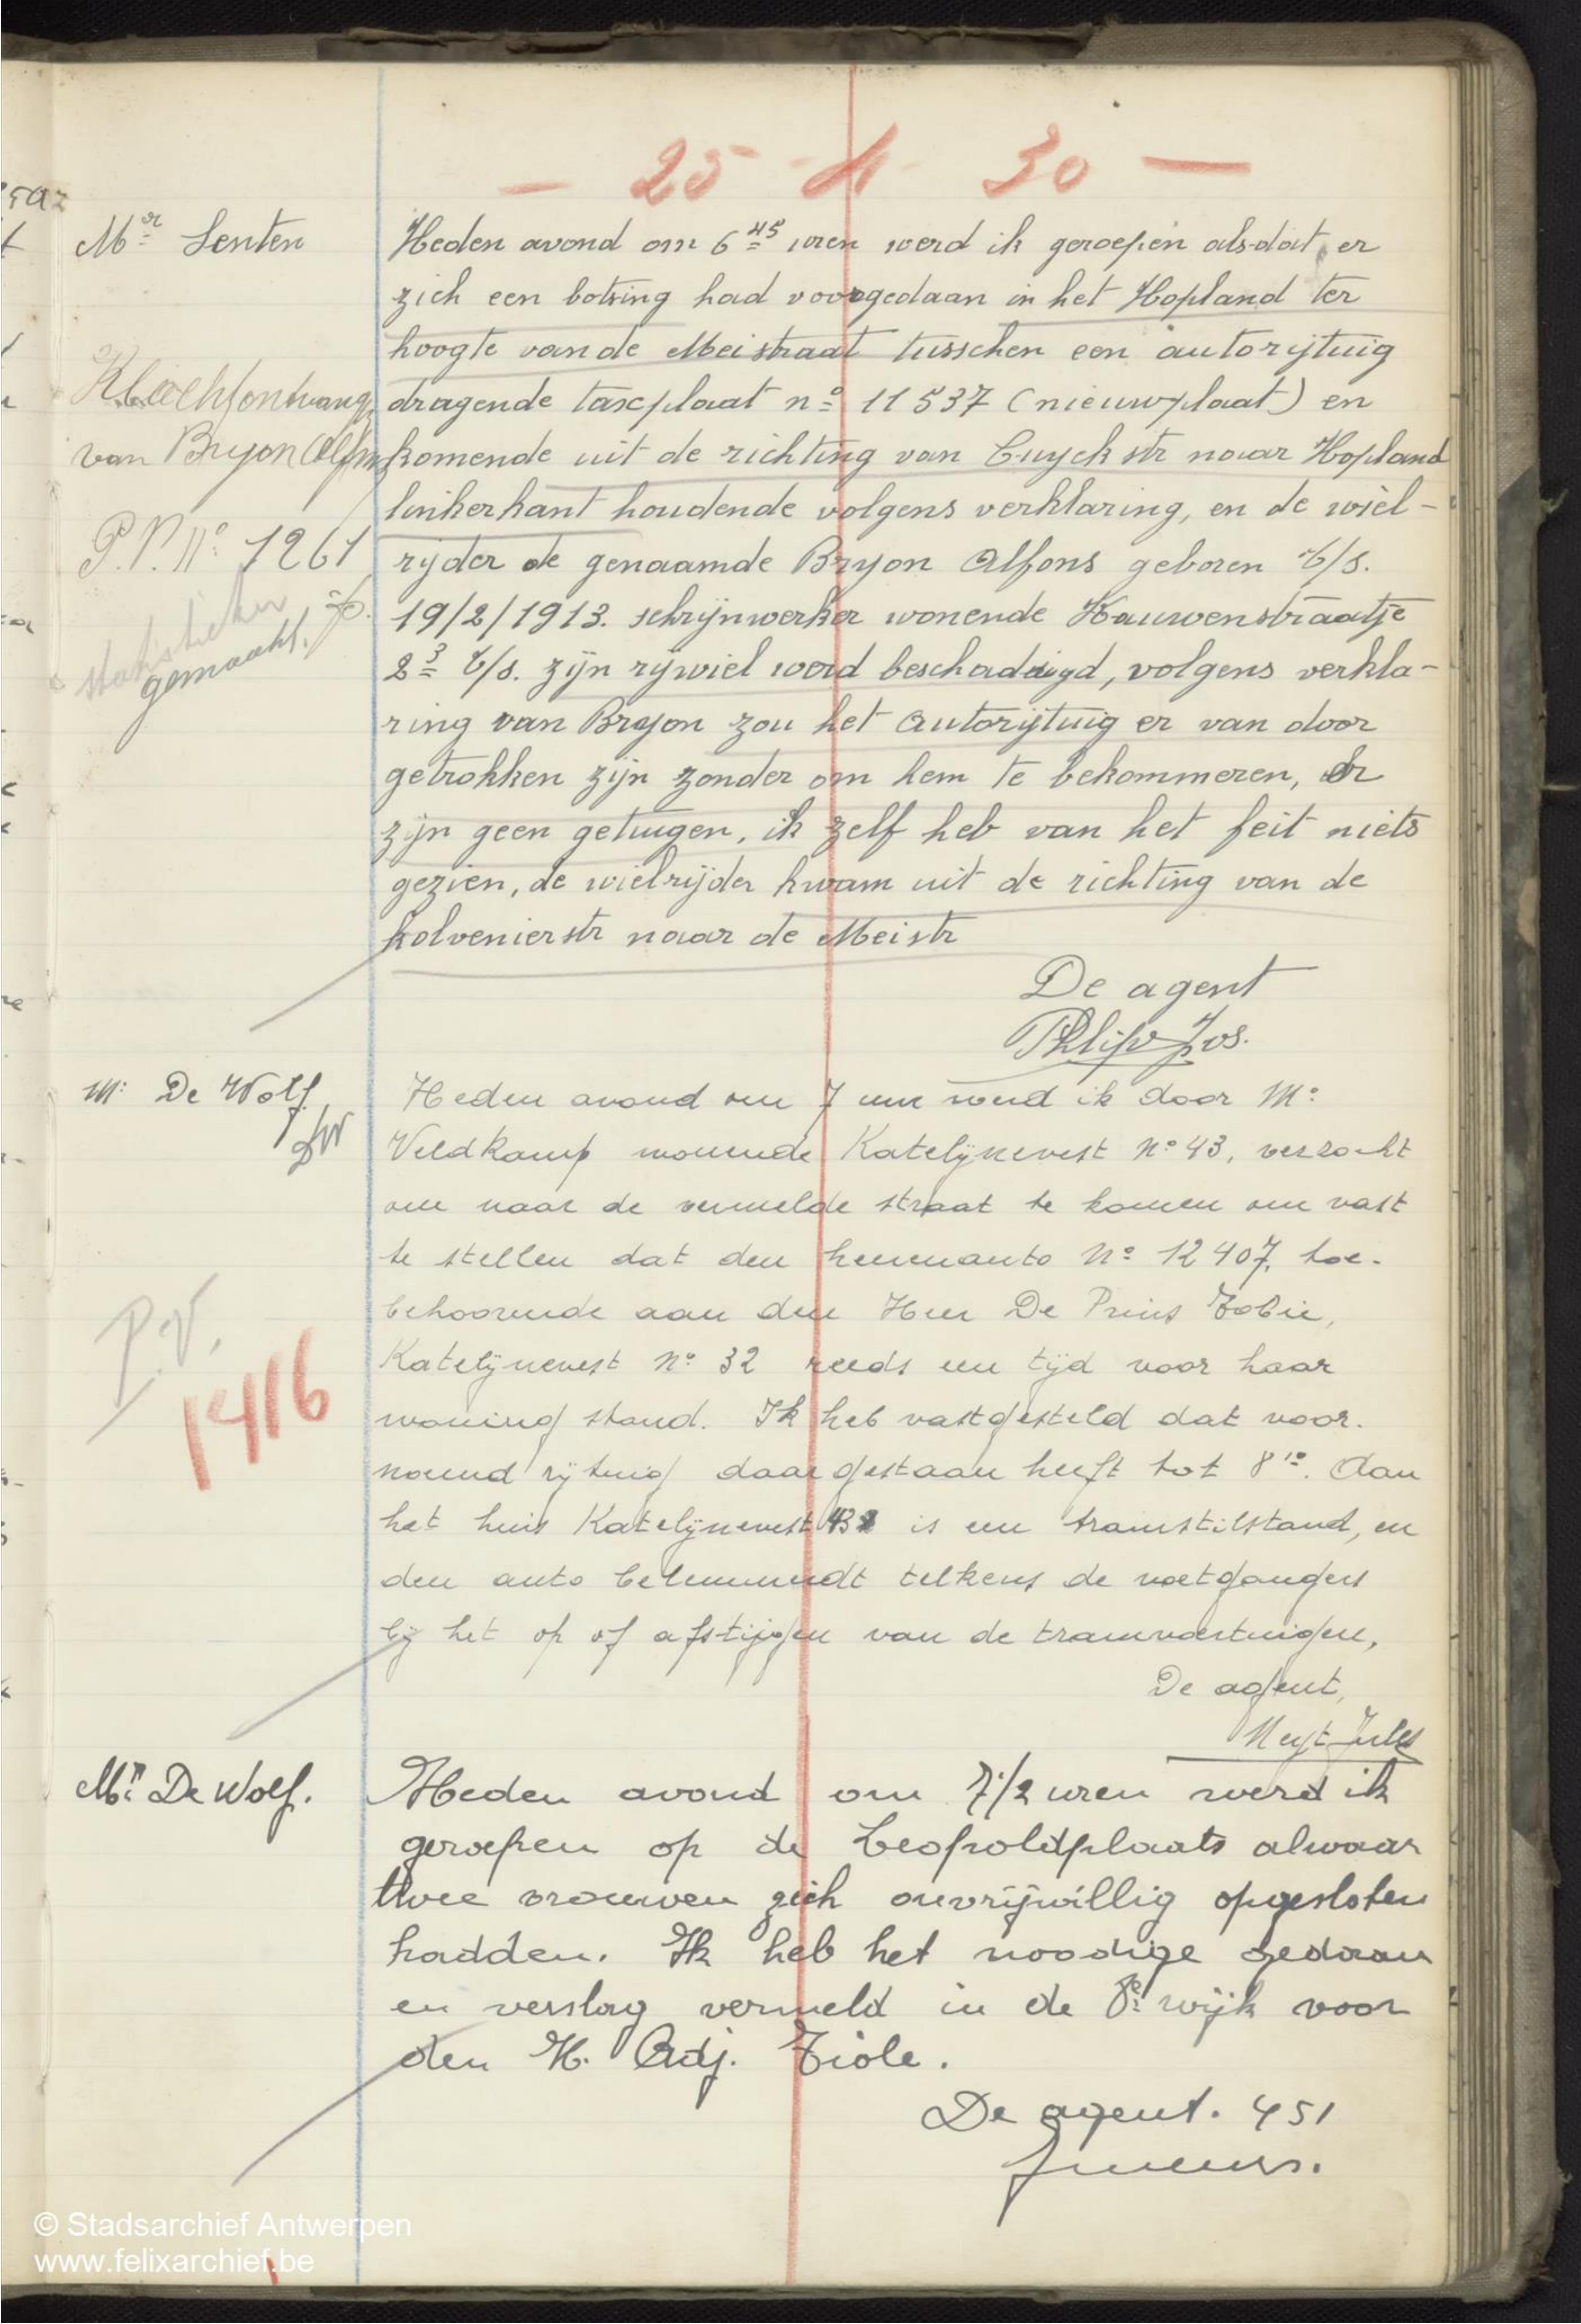 — 25 - 4 - 30 —
Mr Senten
Heden avond om 6 45 uren werd ik geroepen als dat er
zich een botsing had voorgedaan in het Hopland ter
hoogte van de Meistraat tusschen een autorijtuig
dragende taxplaat no 11537 (nieuwplaat) en
komende uit de richting van Cuyckstr naar Hopland
linkerkant houdende volgens verklaring, en de wiel-
rijder de genaamde Bryon Alfons geboren t/s.
19/2/1913. schrijnwerker wonende Kauwenstraatje
2 3 t/s. zijn rijwiel werd beschadigd, volgens verkla-
ring van Bryon zou het autorijtuig er van door
getrokken zijn zonder om hem te bekommeren, Er
zijn geen getuigen, ik zelf heb van het feit niets
gezien, de wielrijder kwam uit de richting van de
kolvenierstr naar de Meistr
De agent
Philips Jos.
Klachtontvang
van Bryon Alfons
P.V. No 1261
statistieken
gemaakt.
M: De Wolf
DW
Heden avond om 7 uur werd ik door M:
Veldkamp wonende Katelijnevest No 43, verzocht
om naar de vermelde straat te komen om vast
te stellen dat den heerenauto No 12407, toe-
behoorende aan den Heer De Prins Tobie,
Katelijnevest No 32 reeds een tijd voor haar
woning stond. Ik heb vastgesteld dat voor-
noemd rijtuig daar gestaan heeft tot 8 10. Aan
het huis Katelijnevest 43 is een tramstilstand, en
den auto belemmerdt telkens de voetgangers
bij het op of afstijgen van de tramvoertuigen,
De agent,
Neyt Jules
P.V.
1416
Mr De Wolf.
Heden avond om 7 1/2 uren werd ik
geroepen op de Leopoldplaats alwaar
twee vrouwen zich onvrijwillig opgesloten
hadden. Ik heb het noodige gedaan
en verslag vermeld in de 8e wijk voor
den H. Adj. Tiole.
De agent. 451
© Stadsarchief Antwerpen
www.felixarchief.be